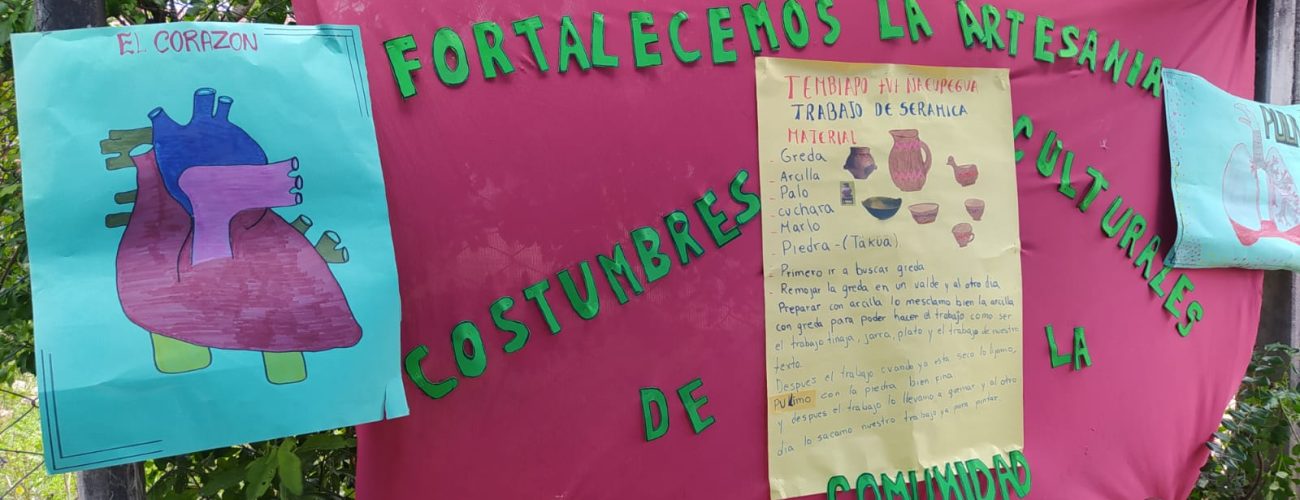 EL CORAZON
FORTALECEMOS LA ARTESANIA
COSTUMBRES CULTURALES
DE LA
COMUNIDAD
TRABAJO DE SERAMICA
MATERIAL
- Greda
- Arcilla
- Palo
- cuchara
- Marlo
- Piedra - (Takua)
- Primero ir a buscar greda
- Remojar la greda en un valde y al otro dia
Preparar con arcilla lo mesclamo bien la arcilla
con greda para poder hacer el trabajo como ser
el trabajo tinaja, jarra, plato y el trabajo de nuestro
texto.
Despues el trabajo cuando ya esta seco lo lijamo,
pulimo con la piedra bien fina
y despues el trabajo lo llevamo a quemar y al otro
dia lo sacamo nuestro trabajo ya para pintar.